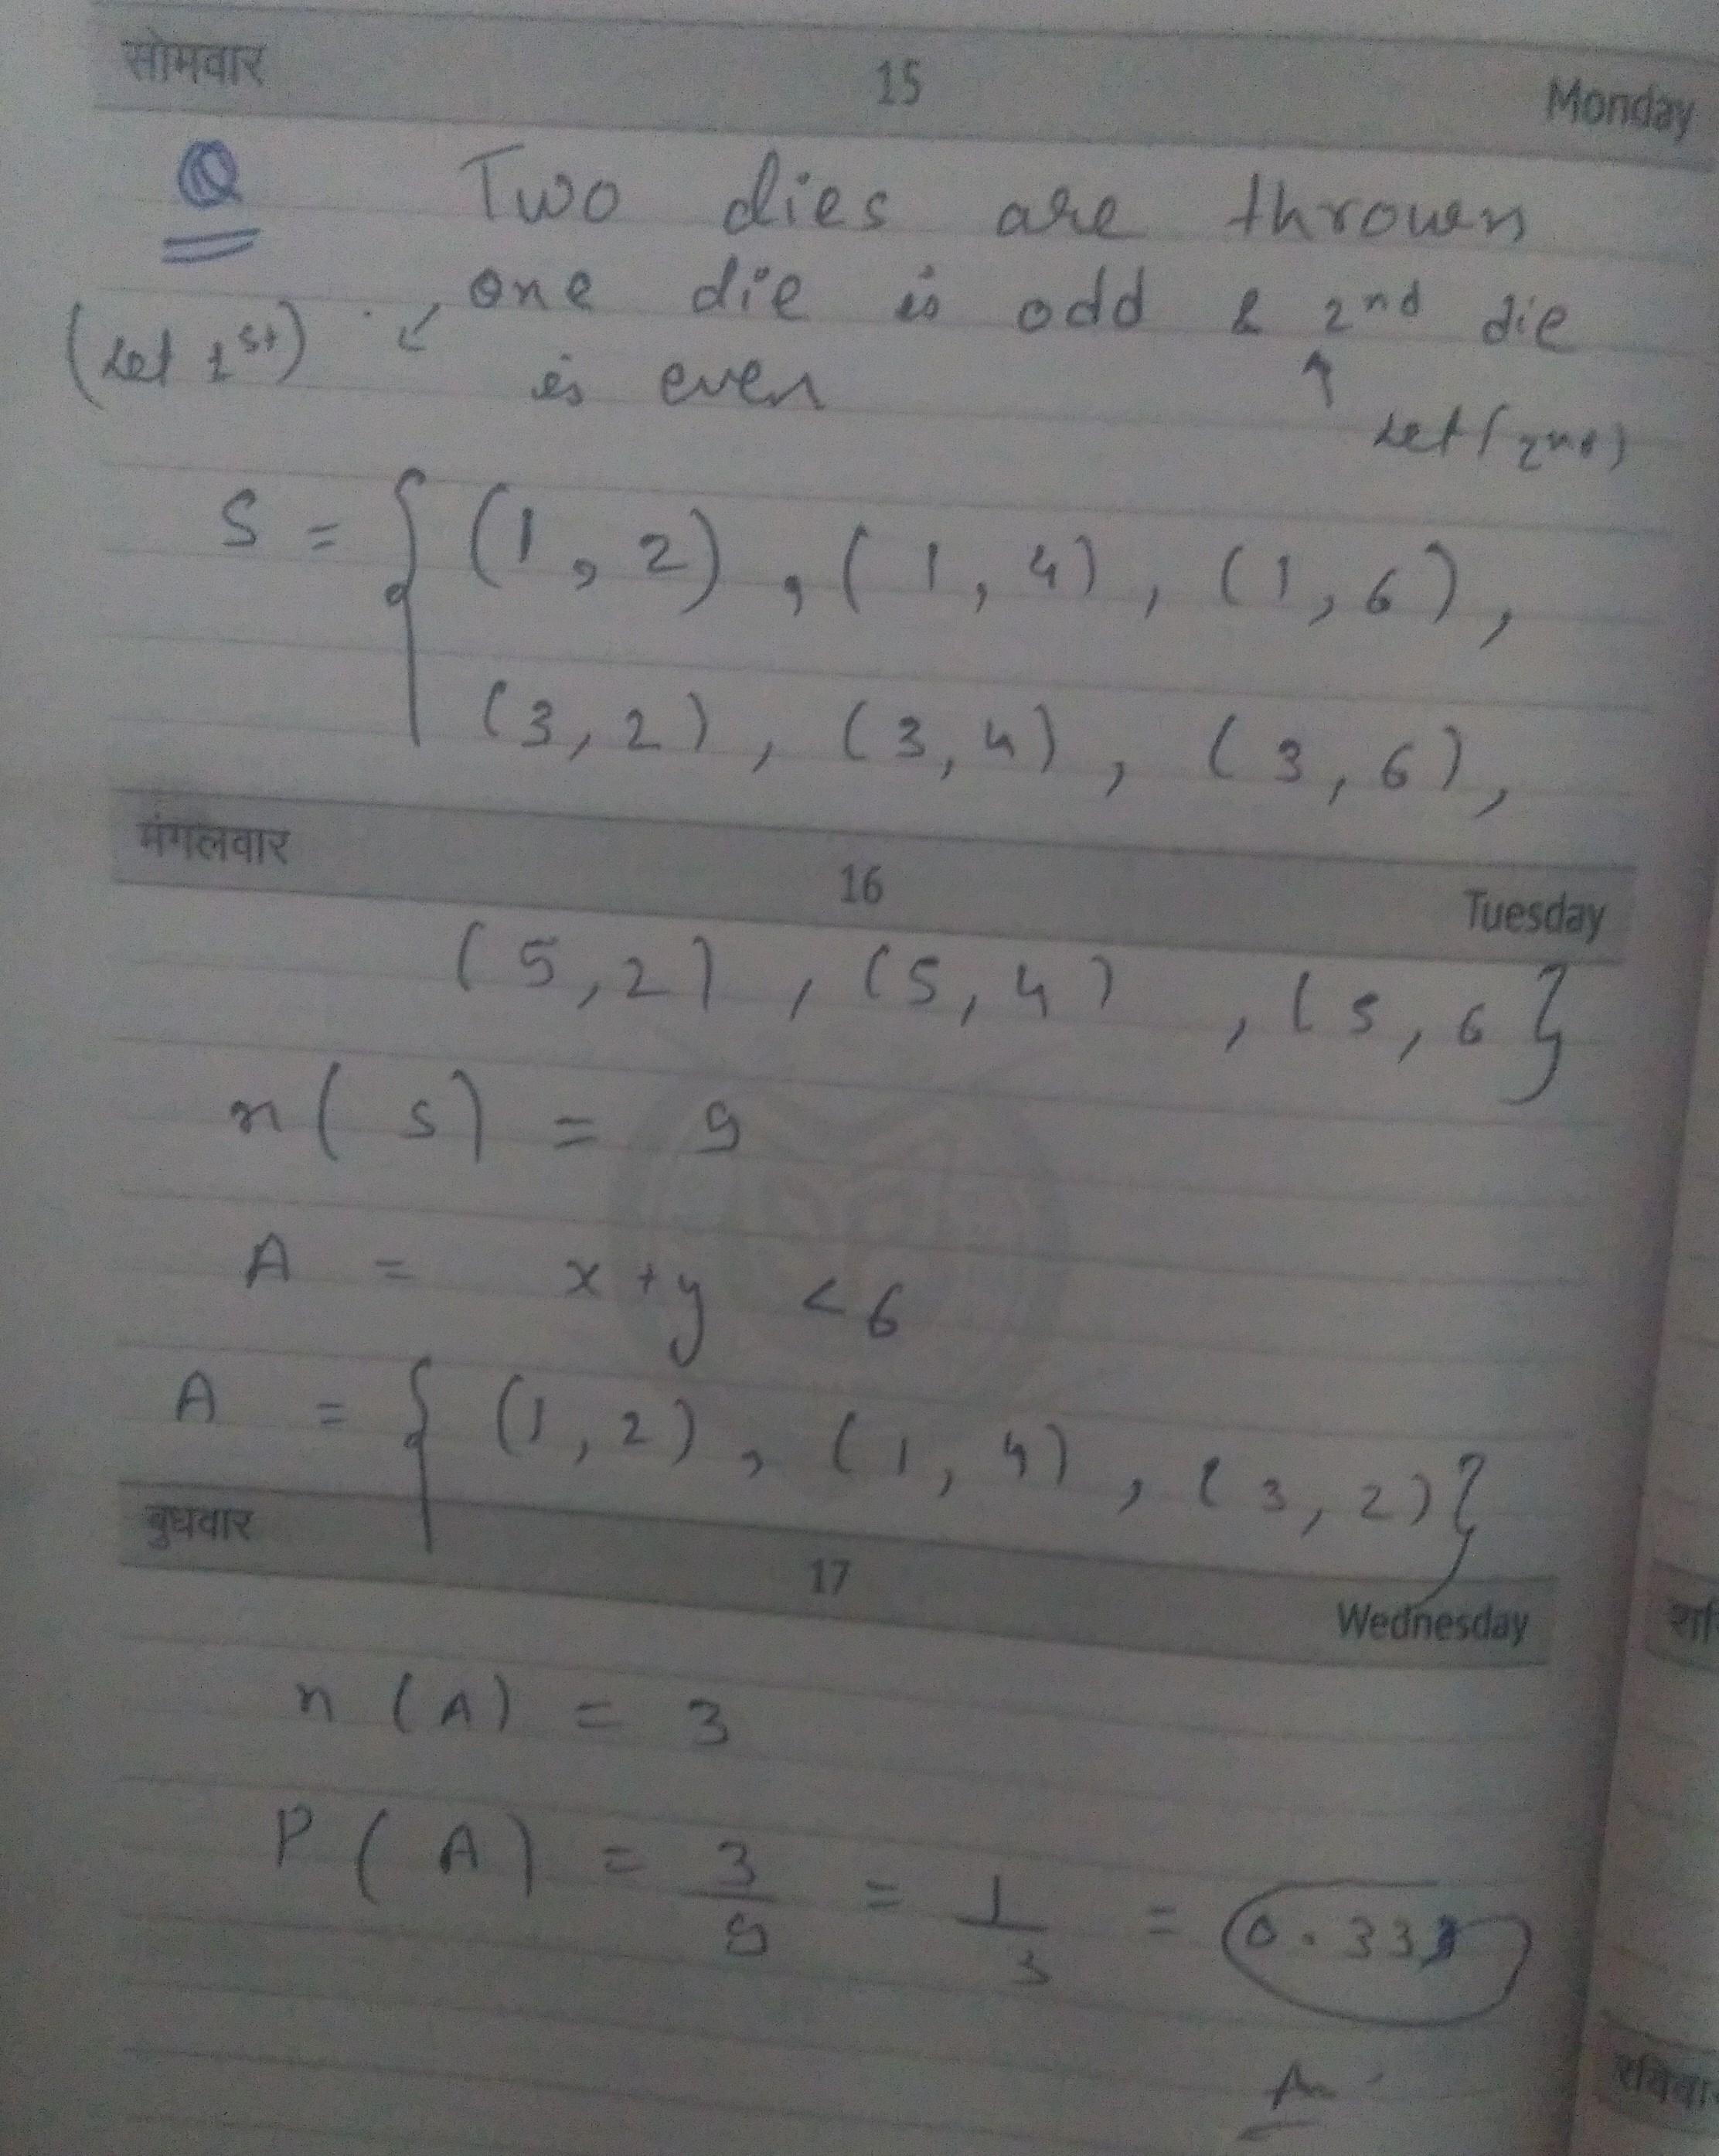 सोमवार 15 Monday
Q Two dies are thrown
one die is odd & 2nd die
(Let 1st) is even
Let (2nd)
S = { (1, 2), (1, 4), (1, 6),
(3, 2), (3, 4), (3, 6),
मंगलवार 16 Tuesday
(5, 2), (5, 4), (5, 6 }
n(s) = 9
A = x + y < 6
A = { (1, 2), (1, 4), (3, 2) }
बुधवार 17 Wednesday
n (A) = 3
P(A) = 3/9 = 1/3 = 0.333